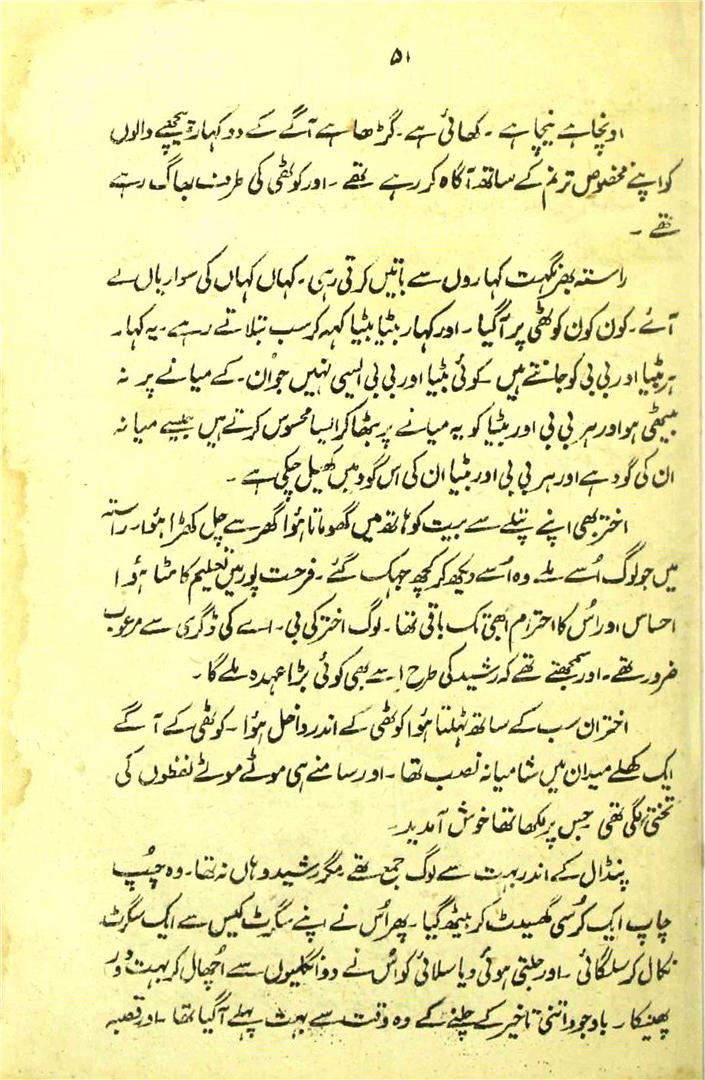 ۵۱
اونچا ہے نیچا ہے ۔ کھائی ہے ۔ گڑھا ہے آگے کے دو کہار پیچھے والوں
کو اپنے مخصوص ترنم کے ساتھ آگاہ کر رہے تھے ۔ اور کوٹھی کی طرف بھاگ رہے
تھے ۔
راستہ بھر نگہت کہاروں سے باتیں کرتی رہی ۔ کہاں کہاں کی سواریاں لے
آئے ۔ کون کون کوٹھی پر آگیا ۔ اور کہار بٹیا بٹیا کہہ کر سب بتلاتے رہے ۔ یہ کہار
ہر بٹیا اور بی بی کو جانتے ہیں ۔ کوئی بٹیا اور بی بی ایسی نہیں جو ان ۔ کے میانے پر نہ
بیٹھی ہو اور ہر بی بی اور بٹیا کو یہ میانے پر بٹھا کر ایسا محسوس کرتے ہیں جیسے میانہ
ان کی گود ہے اور ہر بی بی اور بٹیا ان کی اس گود میں کھیل چکی ہے ۔
اختر بھی اپنے پتلے سے بریت کو ہاتھ میں گھوماتا ہؤا گھر سے چل کھڑا ہؤا ۔ راستہ
میں جو لوگ اُسے ملے وہ اُسے دیکھ کر کچھ جہک گئے ۔ فرحت پور میں تعلیم کا مٹا ہؤا
احساس اور اُس کا احترام ابھی تک باقی تھا ۔ لوگ اختر کی بی ۔ اے کی ڈگری سے مرعوب
ضرور تھے ۔ اور سمجھتے تھے کہ رشید کی طرح اسے بھی کوئی بڑا عہدہ ملے گا ۔
اختر ان سب کے ساتھ ٹہلتا ہؤا کوٹھی کے اندر داخل ہؤا ۔ کوٹھی کے آگے
ایک کھلے میدان میں شامیانہ نصب تھا ۔ اور سامنے ہی موٹے موٹے لفظوں کی
تختی لگی تھی جس پر لکھا تھا خوش آمدید ۔
پنڈال کے اندر بہت سے لوگ جمع تھے مگر رشید وہاں نہ تھا ۔ وہ چُپ
چاپ ایک کُرسی گھسیٹ کر بیٹھ گیا ۔ پھر اُس نے اپنے سگرٹ کیس سے ایک سگرٹ
نکال کر سلگائی ۔ اور جلتی ہوئی دیا سلائی کو اُس نے دو انگلیوں سے اُچھال کر بہت دور
پھینکا ۔ باوجود اتنی تاخیر کے چلنے کے وہ وقت سے بہت پہلے آگیا تھا ۔ اور قصبہ